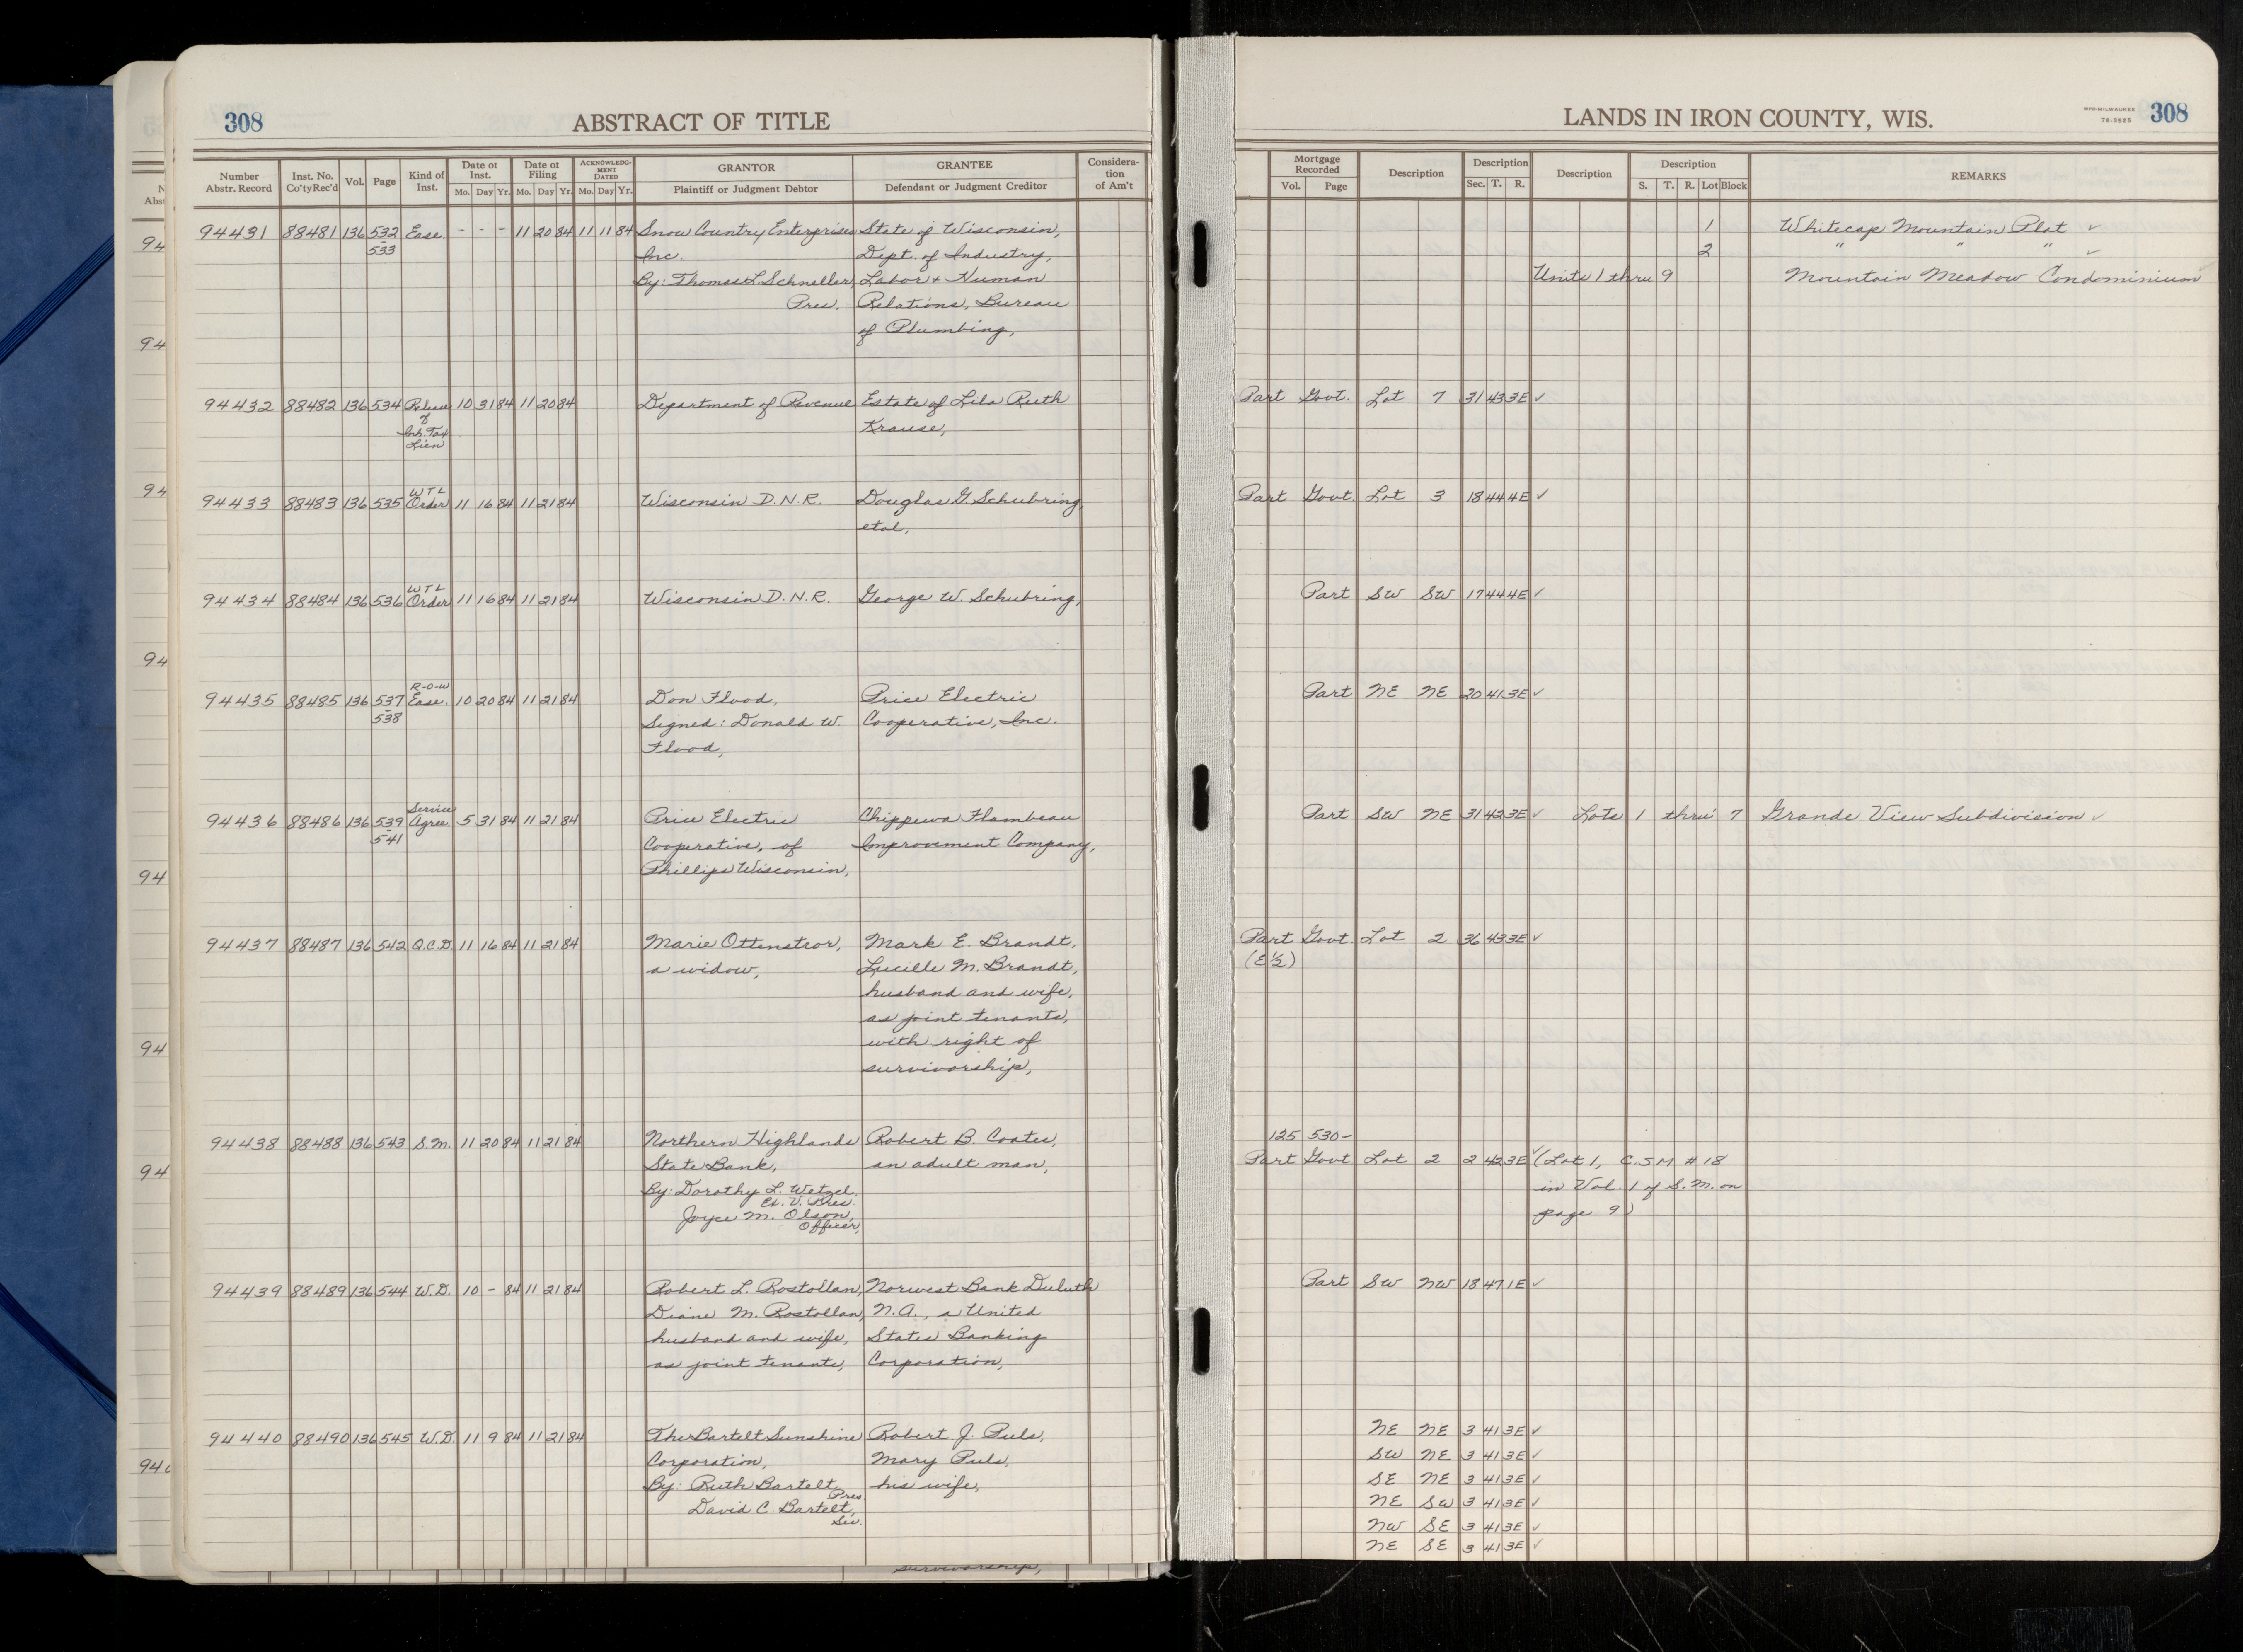 308
ABSTRACT OF TITLE
Number Abstr. Record
Inst. No. Co'ty Rec'd
Vol.
Page
Kind of Inst.
Date of Inst.
Mo. Day Yr.
Date of Filing
Mo. Day Yr.
ACKNOWLEDGMENT DATED
Mo. Day Yr.
GRANTOR
Plaintiff or Judgment Debtor
GRANTEE
Defendant or Judgment Creditor
Consideration of Am't
94431 88481 136 532 Ease. - - - 11 20 84 11 11 84 Snow Country Enterprises State of Wisconsin,
533 Inc. Dept. of Industry,
By: Thomas L. Schneller, Labor + Human
Pres. Relations, Bureau
of Plumbing,
94432 88482 136 534 Release 10 31 84 11 20 84 Department of Revenue Estate of Lila Ruth
of Krause,
Inh. Tax
Lien
W T L
94433 88483 136 535 Order 11 16 84 11 21 84 Wisconsin D.N.R. Douglas G. Schubring,
etal,
W T L
94434 88484 136 536 Order 11 16 84 11 21 84 Wisconsin D.N.R. George W. Schubring,
R-O-W
94435 88485 136 537 Ease. 10 20 84 11 21 84 Don Flood, Price Electric
538 Signed: Donald W. Cooperative, Inc.
Flood,
Service
94436 88486 136 539 Agree. 5 31 84 11 21 84 Price Electric Chippewa Flambeau
541 Cooperative, of Improvement Company,
Phillips Wisconsin,
94437 88487 136 542 Q.C.D. 11 16 84 11 21 84 Marie Ottensteor, Mark E. Brandt,
a widow, Lucille M. Brandt,
husband and wife,
as joint tenants,
with right of
survivorship,
94438 88488 136 543 S.M. 11 20 84 11 21 84 Northern Highlands Robert B. Coates,
State Bank, an adult man,
By: Dorothy L. Wetzel,
Ex. V. Pres.
Joyce M. Olson,
Officer,
94439 88489 136 544 W.D. 10 - 84 11 21 84 Robert L. Rostollan, Norwest Bank Duluth
Diane M. Rostollan, N.A., a United
husband and wife, States Banking
as joint tenants, Corporation,
94440 88490 136 545 W.D. 11 9 84 11 21 84 The Bartelt Sunshine Robert J. Puls,
Corporation, Mary Puls,
By: Ruth Bartelt, his wife,
Pres.
David C. Bartelt,
Sec.
survivorship,
LANDS IN IRON COUNTY, WIS.
WPB-MILWAUKEE
78-3525
308
Mortgage Recorded
Vol. Page
Description
Description
Sec. T. R.
Description
Description
S. T. R. Lot Block
REMARKS
1 Whitecap Mountain Plat ✓
2 " " " ✓
Units 1 thru 9 Mountain Meadow Condominium
Part Govt. Lot 7 31 43 3E ✓
Part Govt. Lot 3 18 44 4E ✓
Part SW SW 17 44 4E ✓
Part NE NE 20 41 3E ✓
Part SW NE 31 42 3E ✓ Lots 1 thru 7 Grande View Subdivision ✓
Part Govt. Lot 2 36 43 3E ✓
(E½)
125 530-
Part Govt Lot 2 2 42 3E ✓ (Lot 1, C.S.M # 18
in Vol. 1 of S.M. on
page 9)
Part SW NW 18 47 1E ✓
NE NE 3 41 3E ✓
SW NE 3 41 3E ✓
SE NE 3 41 3E ✓
NE SW 3 41 3E ✓
NW SE 3 41 3E ✓
NE SE 3 41 3E ✓